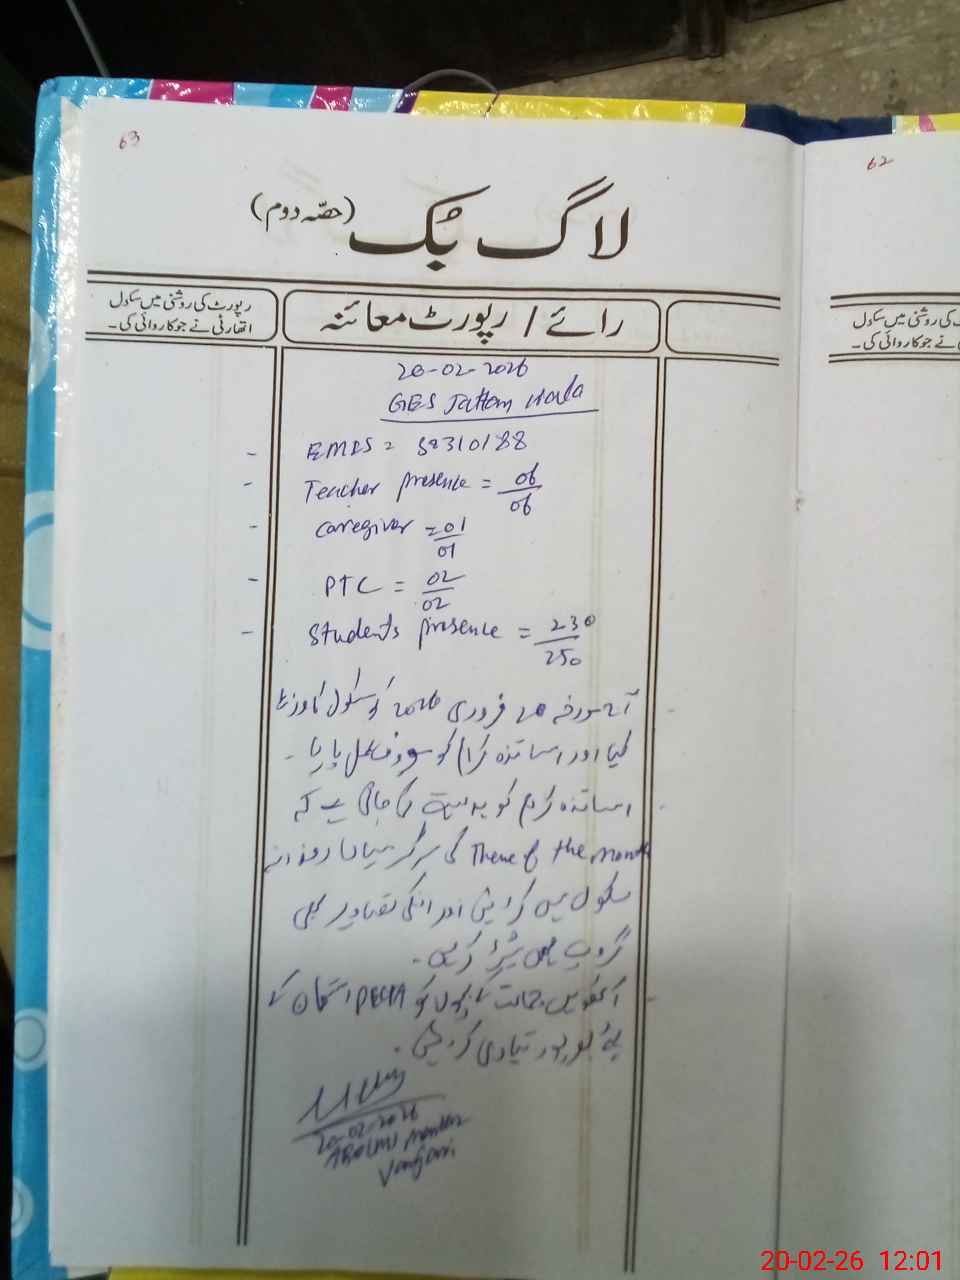 63
62
لاگ بُک (حصّہ دوم)
رائے / رپورٹ معائنہ
رپورٹ کی روشنی میں سکول
اتھارٹی نے جو کاروائی کی۔
کی روشنی میں سکول
نے جو کاروائی کی۔
20-02-2026
GES Jattan wala
- EMIS = 38310188
- Teacher presence = 06/06
- caregiver = 01/01
- PTC = 02/02
- Students presence = 230/250
آج مورخہ 20 فروری 2026 کو سکول کا وزٹ
کیا اور اساتذہ کرام کو مصروف عمل پایا -
اساتذہ کرام کو ہدایت کی جاتی ہے کہ
Theme of the month کی سرگرمیاں روزانہ
سکول میں کرائیں اور انکی تصاویر بھی
گروپ میں شیئر کریں -
آٹھویں جماعت کے بچوں کو PECTA امتحان کے
لئے بھرپور تیاری کروائیں -
20-02-2026
AEO
20-02-26 12:01